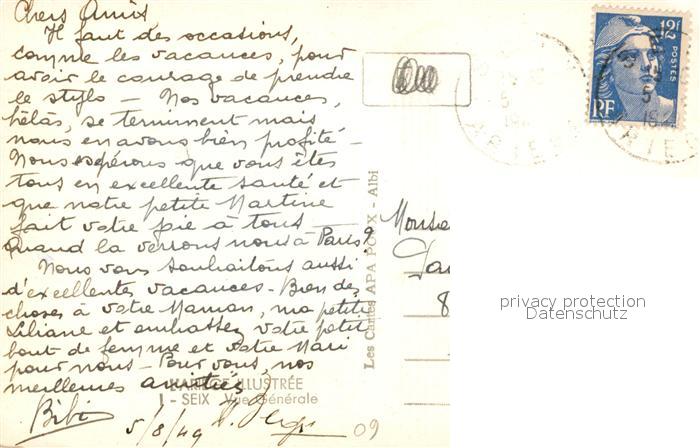 Chers Amis
Il faut des occasions,
comme les vacances, pour
avoir le courage de prendre
le stylo — Nos vacances,
hélàs, se terminent mais
nous en avons bien profité —
Nous espérons que vous êtes
tous en excellente santé et
que notre petite Martine
fait votre joie à tous —
Quand la verrons nous à Paris ?
Nous vous souhaitons aussi
d'excellentes vacances — Bien des
choses à votre Maman, ma petite
Liliane et embrassez votre petit
bout de femme et votre Mari
pour nous — Pour vous, nos
meilleures amitiés
Bibi
5/8/49
L'ARIÈGE ILLUSTRÉE
1 - SEIX Vue Générale
09
Les Cartes APA POUX - Albi
12F
POSTES
RF
ARIEGE
Monsie
8
privacy protection
Datenschutz